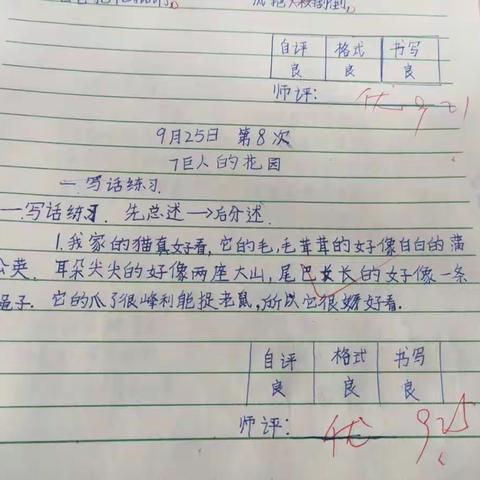 自评 格式 书写
良 良 良
师评: 优 9.21
9月25日 第8次
7巨人的花园
一 写话练习.
一.写话练习. 先总述→后分述.
1.我家的猫真好看,它的毛,毛茸茸的好像白白的蒲
公英. 耳朵尖尖的好像两座大山,尾巴长长的好像一条
绳子. 它的爪了很峰利能捉老鼠,所以它很好看.
自评 格式 书写
良 良 良
师评: 优 9.25